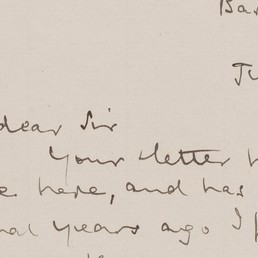 Ba
Ju
dear Sir
Your letter h
e here, and has
nal years ago I